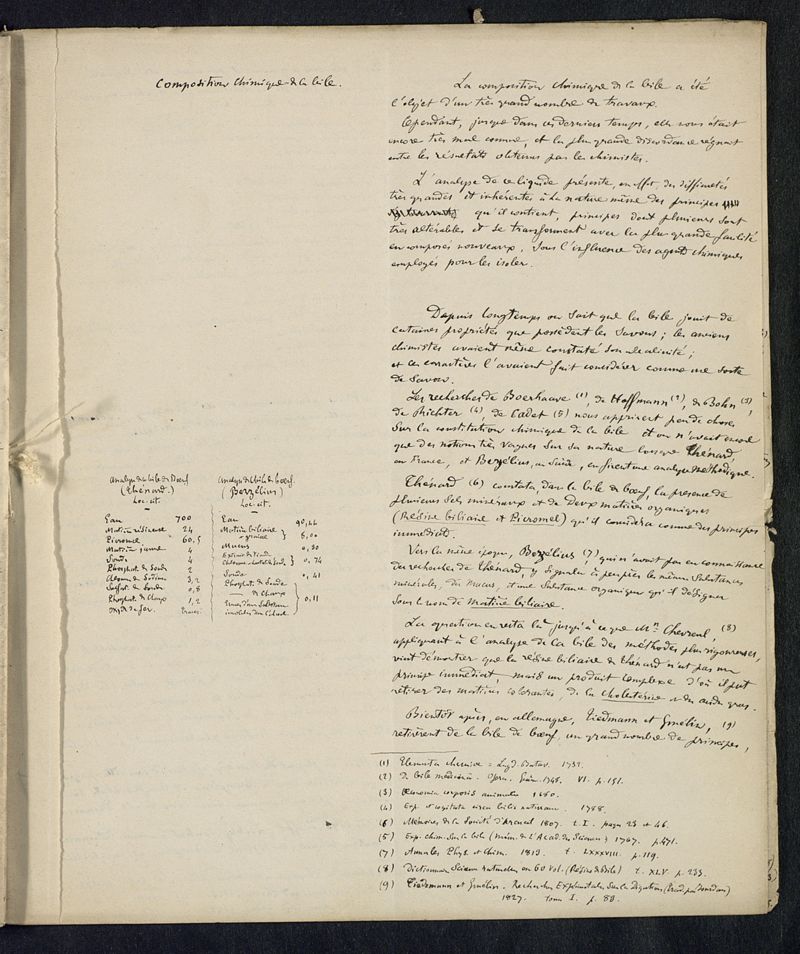 Composition chimique de la bile.
La composition chimique de la bile a été
l'objet d'un très grand nombre de travaux.
Cependant, jusque dans ces derniers temps, elle nous était
encore très mal connue, et la plus grande discordance régnait
entre les résultats obtenus par les chimistes.
L'analyse de ce liquide présente, en effet, des difficultés
très grandes et inhérentes à la nature même des principes
qu'il contient, principes dont plusieurs sont
très altérables et se transforment avec la plus grande facilité
en composés nouveaux, sous l'influence des agent chimiques
employés pour les isoler.
Depuis longtemps on sait que la bile jouit de
certaines propriétés que possèdent les savons; les anciens
chimistes avaient même constaté son alcalinité;
et ces caractères l'avaient fait considérer comme une sorte
de savon.
Les recherches de Boerhaave (1), de Hoffmann (2), de Bohn (3),
de Richter (4), de Cadet (5) nous apprirent peu de choses
sur la constitution chimique de la bile et on n'avait encore
que des notions très vagues sur sa nature lorsque Thénard,
en France, et Berzélius, en Suède, en firent une analyse méthodique.
Thénard (6) constata, dans la bile de bœuf, la présence de
plusieurs sels minéraux et de deux matières organiques
(Résine biliaire et Picromel) qu'il considéra comme des principes
immédiats.
Vers la même époque, Berzélius (7), qui n'avait pas eu connaissance
des recherches de Thénard, y signala à peu près les mêmes substances
minérales, du mucus, et une substance organique qu'il désigna
sous le nom de matière biliaire.
La question en resta là jusqu'à ce que Mr Chevreul, (8)
appliquant à l'analyse de la bile des méthodes plus rigoureuses,
vint démontrer que la résine biliaire de Thénard n'est pas un
principe immédiat mais un produit complexe d'où il put
retirer des matières colorantes, de la cholestérine et des acides gras.
Bientôt après, en allemagne, Tiedmann et Gmélin, (9)
retirèrent de la bile de bœuf, un grand nombre de principes,
Analyse de la bile de Bœuf
(Thénard.)
Loc. cit.
Eau 700
Matière résineuse 24
Picromel 60.5
Matière jaune 4
Soude 4
Phosphat. de Soude 2
Chlor. de Sodium 3,2
Sulfat. de Soude 0,8
Phosphat. de Chaux 1,2
Oxyd. de fer. traces.
Analyse de bile de bœuf
(Berzélius)
Loc. cit.
Eau 90,44
Matière biliaire
et graisse } 8,00
Mucus 0,30
} 0,74
Soude 0,41
Phosphat. de Soude
— de Chaux
insolubles dans l'alcool } 0,11
(1) Elementa chemiæ = Lugd. Batav. 1732.
(2) De bile medicina. Opera. 1748. VI. p. 151.
(3) Œconomia corporis animalis 1680.
(4) Exp. et cogitata circa bilis naturam. 1788.
(6) Mémoires de la Société d'Arcueil 1807. t. I. pages 23 et 46.
(5) Exp. chim. sur la bile (Mém. de l'Acad. des Sciences) 1767. p. 471.
(7) Annales Phys. et Chim. 1813. t. LXXXVIII. p. 119.
(8) Dictionnaire Sciences naturelles en 60 vol. t. XLV. p. 233.
(9) Tiedemann et Gmélin. Recherches Expérimentales sur la Digestion (Trad. par Jourdan)
1827. tome I. p. 83.